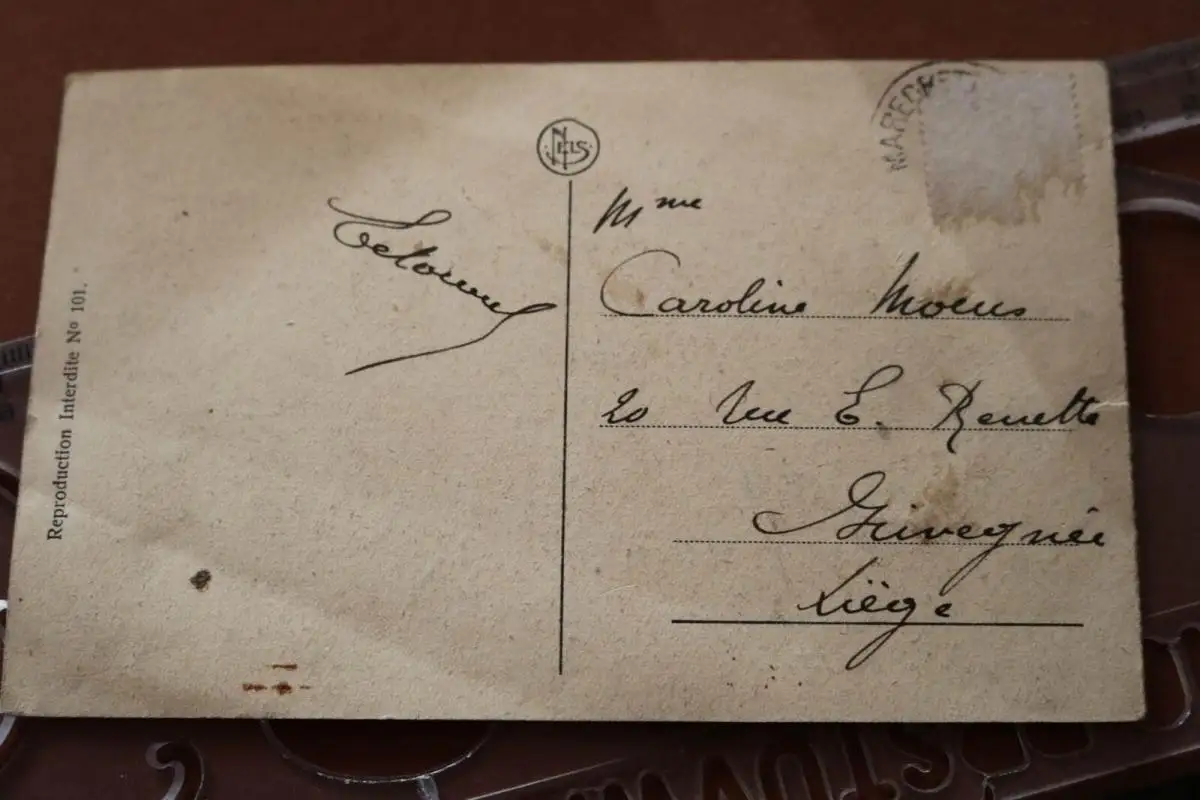 Reproduction Interdite Nº 101.
NELS
MAREDRET
Mme
Caroline Moens
20 Rue E. Renette
Grivegnée
Liège